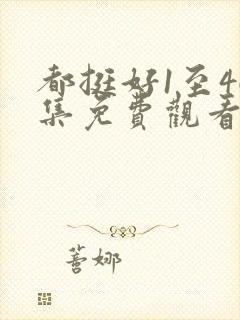 都挺好1至4
集免費觀看
善娜